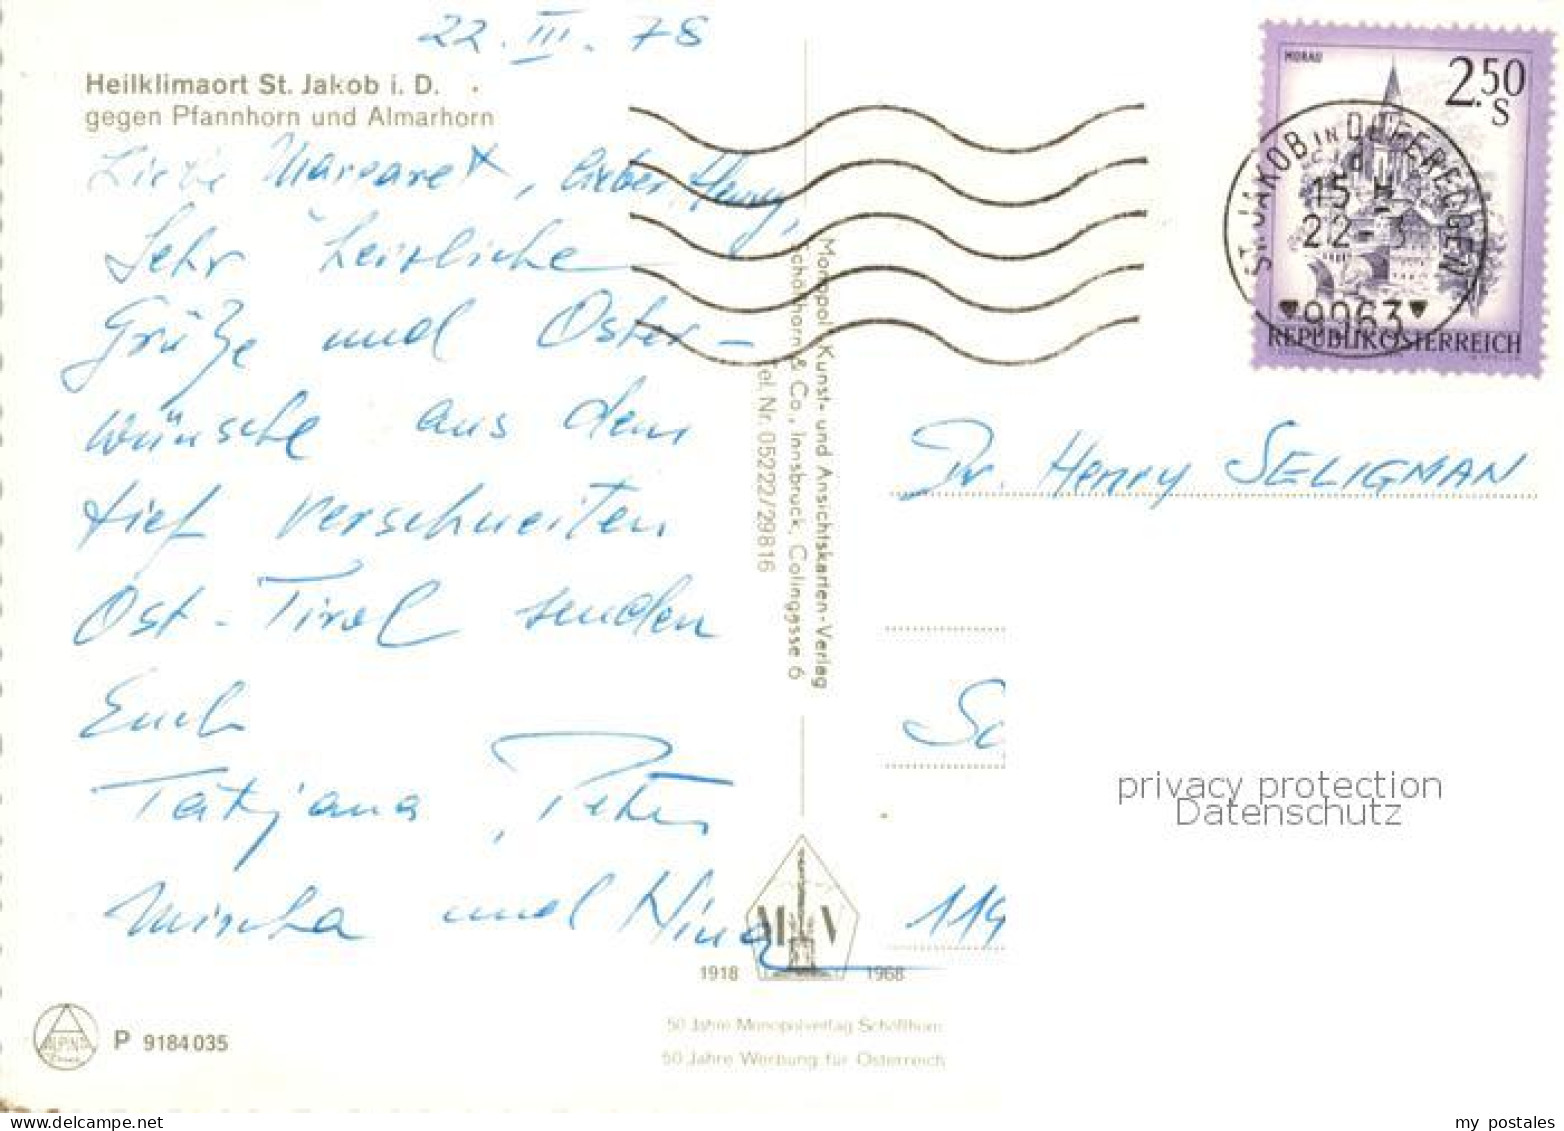 22. III. 78
Heilklimaort St. Jakob i. D.
gegen Pfannhorn und Almarhorn
Liebe Margaret, lieber Henry,
Sehr herzliche
Grüße und Oster-
wünsche aus dem
tief verschneiten
Ost-Tirol senden
Euch
Tatjana, Peter
Mischa und Nina
MURAU
2.50
S
REPUBLIK ÖSTERREICH
ST. JAKOB IN DEFEREGGEN
15
22.-3
9963
Monopol Kunst- und Ansichtskarten-Verlag
Schöllhorn & Co., Innsbruck, Colinggasse 6
Tel. Nr. 05222/29816
Dr. Henry SELIGMAN
119
privacy protection
Datenschutz
M V
1918 1968
50 Jahre Monopolverlag Schöllhorn
50 Jahre Werbung für Österreich
ALPINA
P 9184035
delcampe.net
my postales